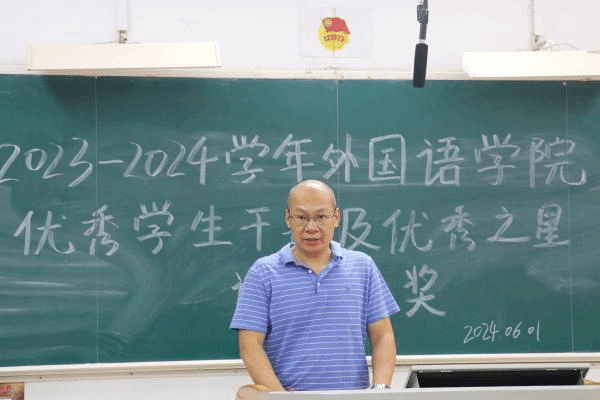 2023-2024学年外国语学院
优秀学生干 及优秀之星
奖
2024.06.01